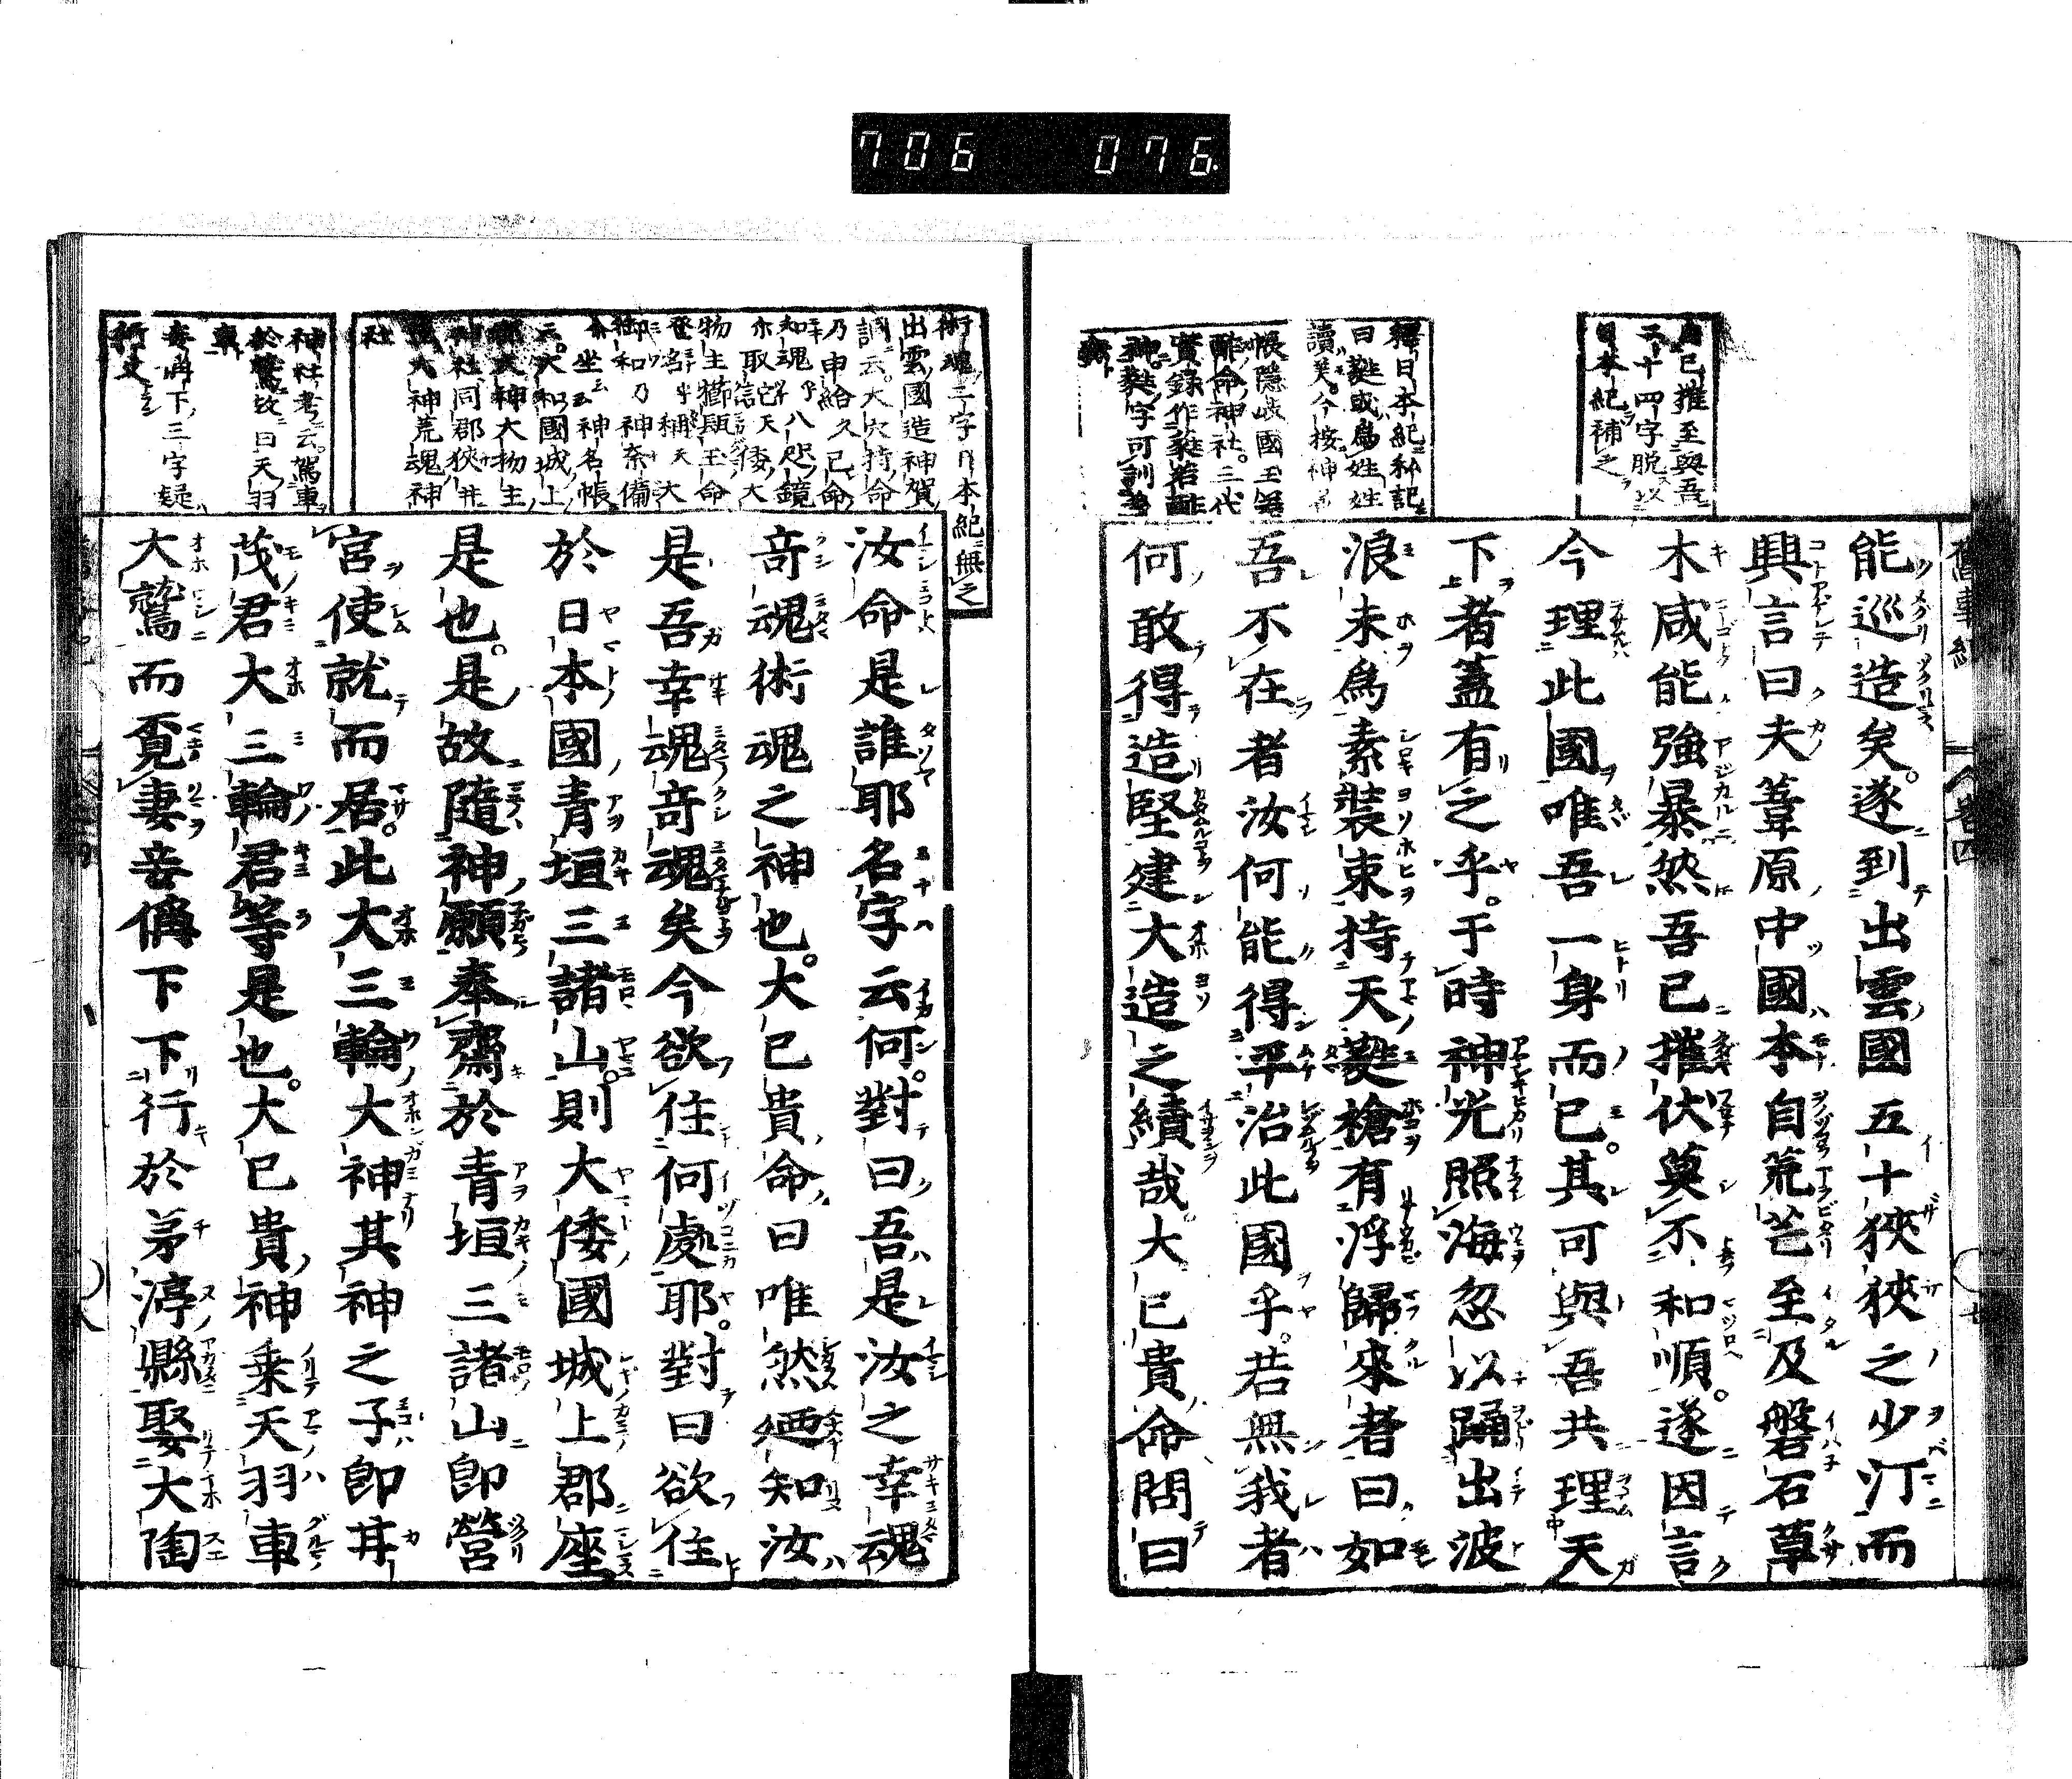 706 076
能巡造矣。遂到出雲國五十狹狹之少汀而
興言曰夫葦原中國本自荒芒至及磐石草
木咸能強暴然吾已摧伏莫不和順。遂因言
今理此國唯吾一身而已。其可與吾共理天
下者蓋有之乎。于時神光照海忽以踊出波
浪末為素裝束持天蕤槍有浮歸來者曰如
吾不在者汝何能得平治此國乎。若無我者
何敢得造堅建大造之績哉。大已貴命問曰
自已摧至與吾
二十四字脫以
日本紀補之
釋日本紀私記
曰蕤或為姓姓
讀矣。今按神名
帳隱岐國玉
酢命神社。三代
實錄作蕤若酢
神蕤字可訓
汝命是誰耶名字云何。對曰吾是汝之幸魂
竒魂術魂之神也。大已貴命曰唯然廼知汝
是吾幸魂竒魂矣今欲住何處耶。對曰欲住
於日本國青垣三諸山。則大倭國城上郡座
是也。是故隨神願奉齋於青垣三諸山即營
宮使就而居。此大三輪大神其神之子即甘
茂君大三輪君等是也。大已貴神乗天羽車
大鷲而覓妻妾偁下下行於茅渟縣娶大陶
術魂三字日本紀無之
出雲國造神賀
詞云。大穴持命
乃申給久己命
和魂乎八咫鏡
亦取託天倭大
物主櫛𤭖玉命
登名乎稱天大
御和乃神奈備
尓坐云云神名帳
云。大和國城上
郡大神大物主
神社同郡狹井
坐大神荒魂神
社
神社考云。駕車
於鷲故曰天羽
車
妾偁下三字疑
衍文